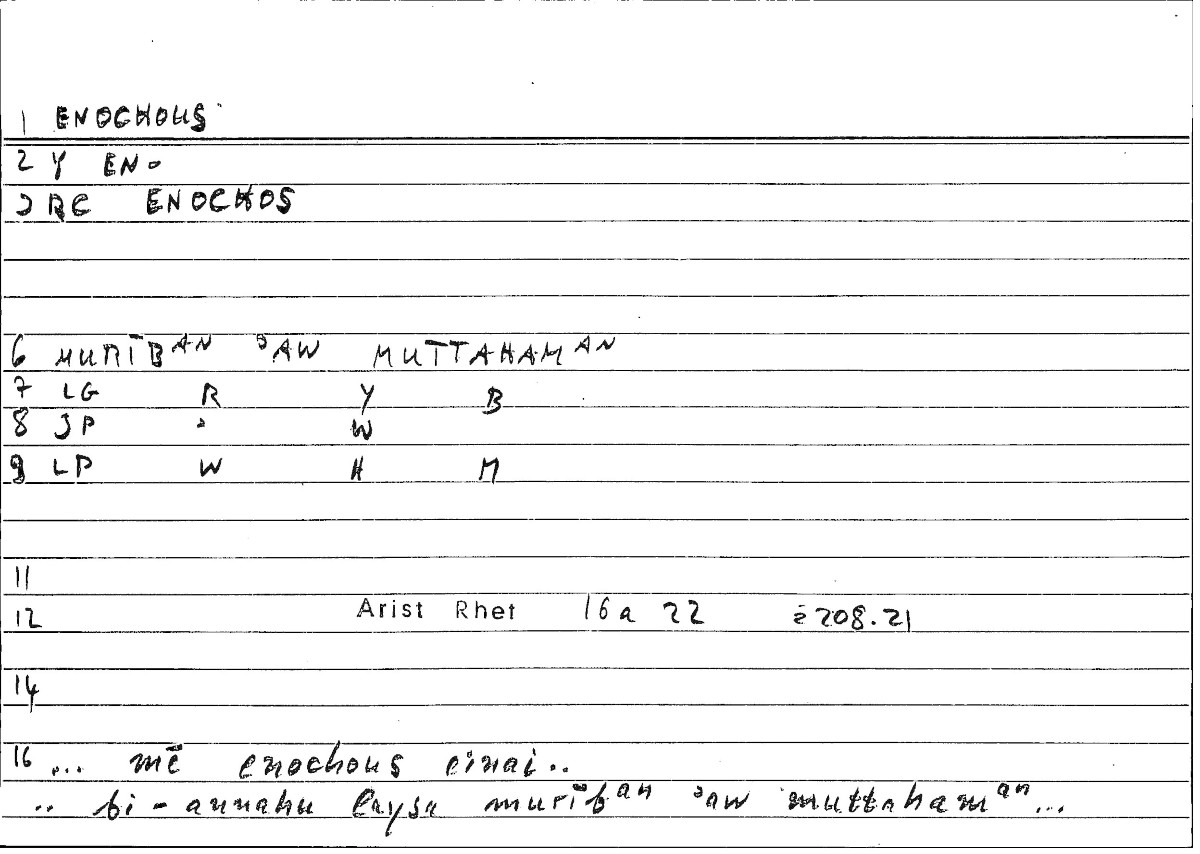 1 ENOCHOUS
2 Y ENO
3 RC ENOCHOS
6 MURĪBᴬᴺ ᵓAW MUTTAHAMᴬᴺ
7 LG R Y B
8 JP ᵓ W
9 LP W H M
11
12 Arist Rhet 16a 22 = 208.21
14
16 ... mē enochous einai..
.. bi-annahu laysa murībᵃⁿ ᵓaw muttahamᵃⁿ...